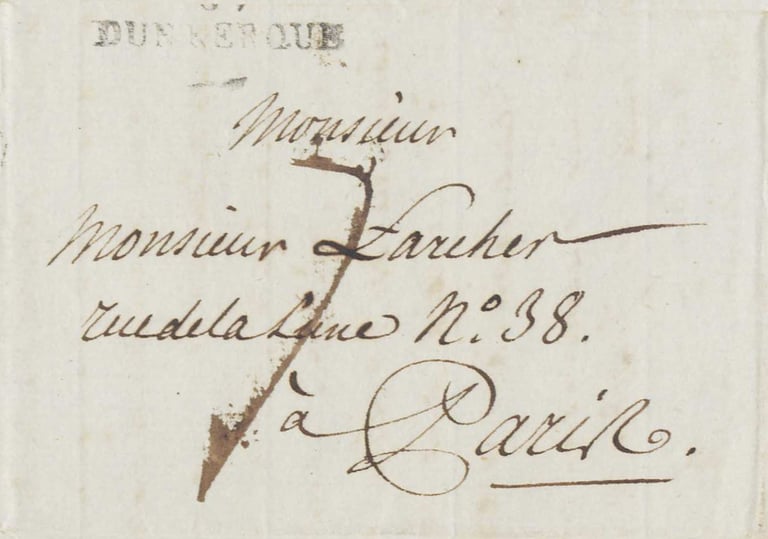 DUNKERQUE
Monsieur
7
Monsieur Larcher
rue de la Lune N.º 38.
à Paris.